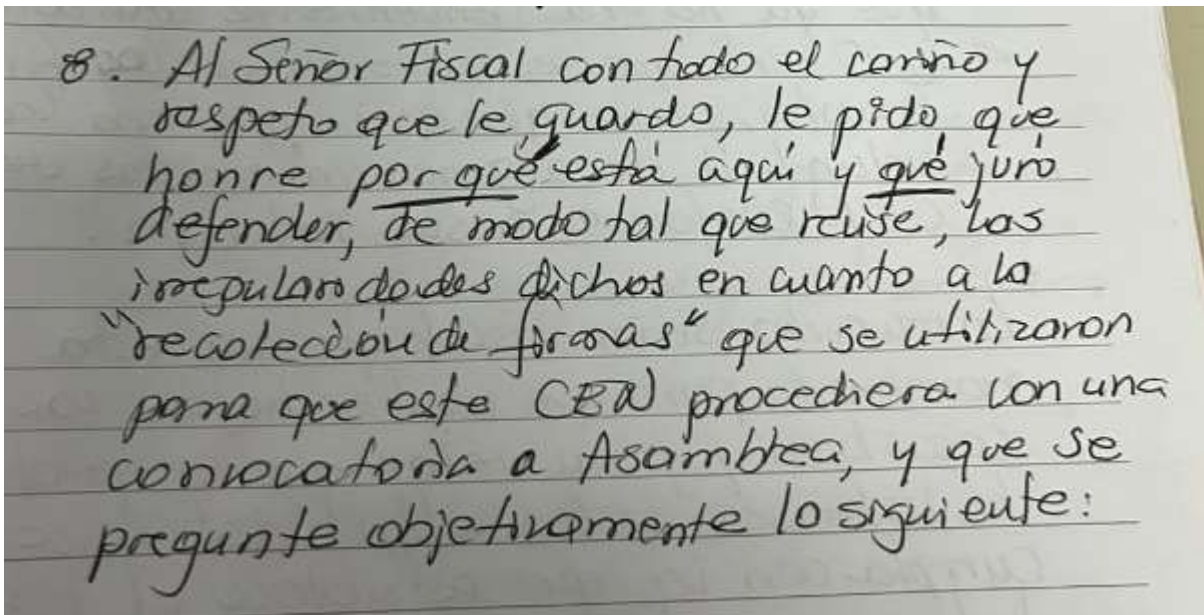 8. Al Señor Fiscal con todo el cariño y
respeto que le guardo, le pido que
honre por qué está aquí y qué juró
defender, de modo tal que reuse, las
irregularidades dichas en cuanto a la
"recolección de firmas" que se utilizaron
para que este CEN procediera con una
convocatoria a Asamblea, y que se
pregunte objetivamente lo siguiente: